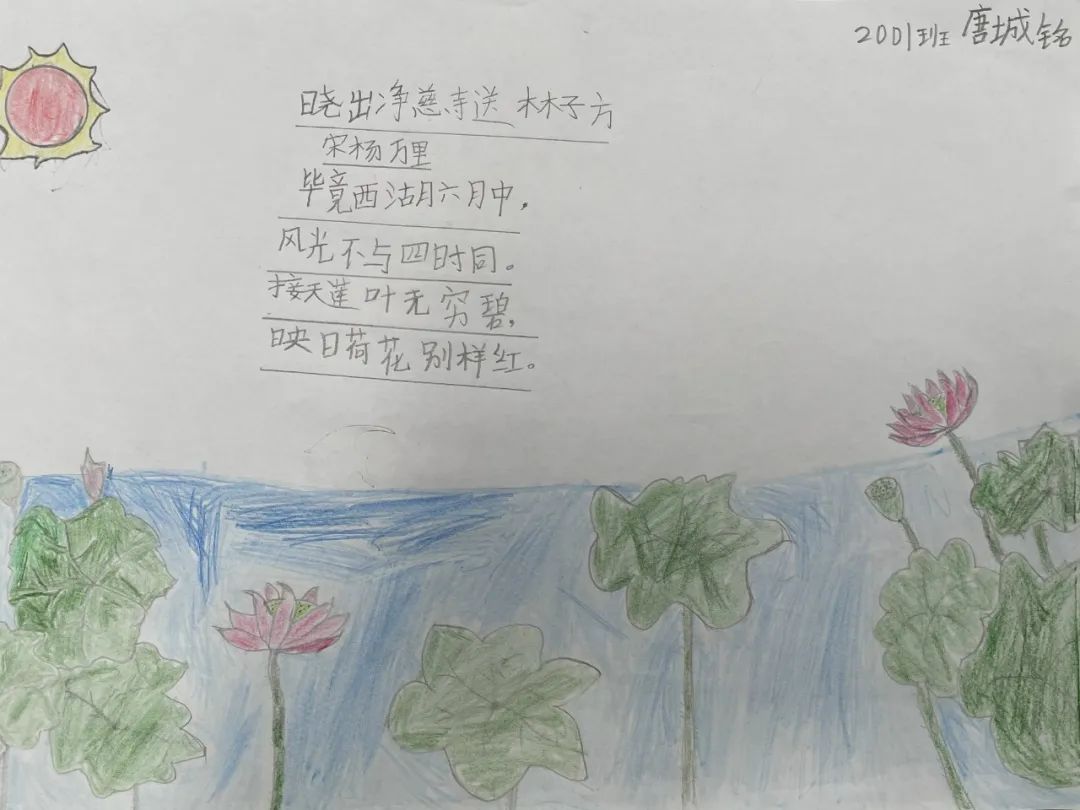 2001班 唐城铭
晓出净慈寺送林子方
宋杨万里
毕竟西湖月六月中，
风光不与四时同。
接天莲叶无穷碧，
映日荷花别样红。